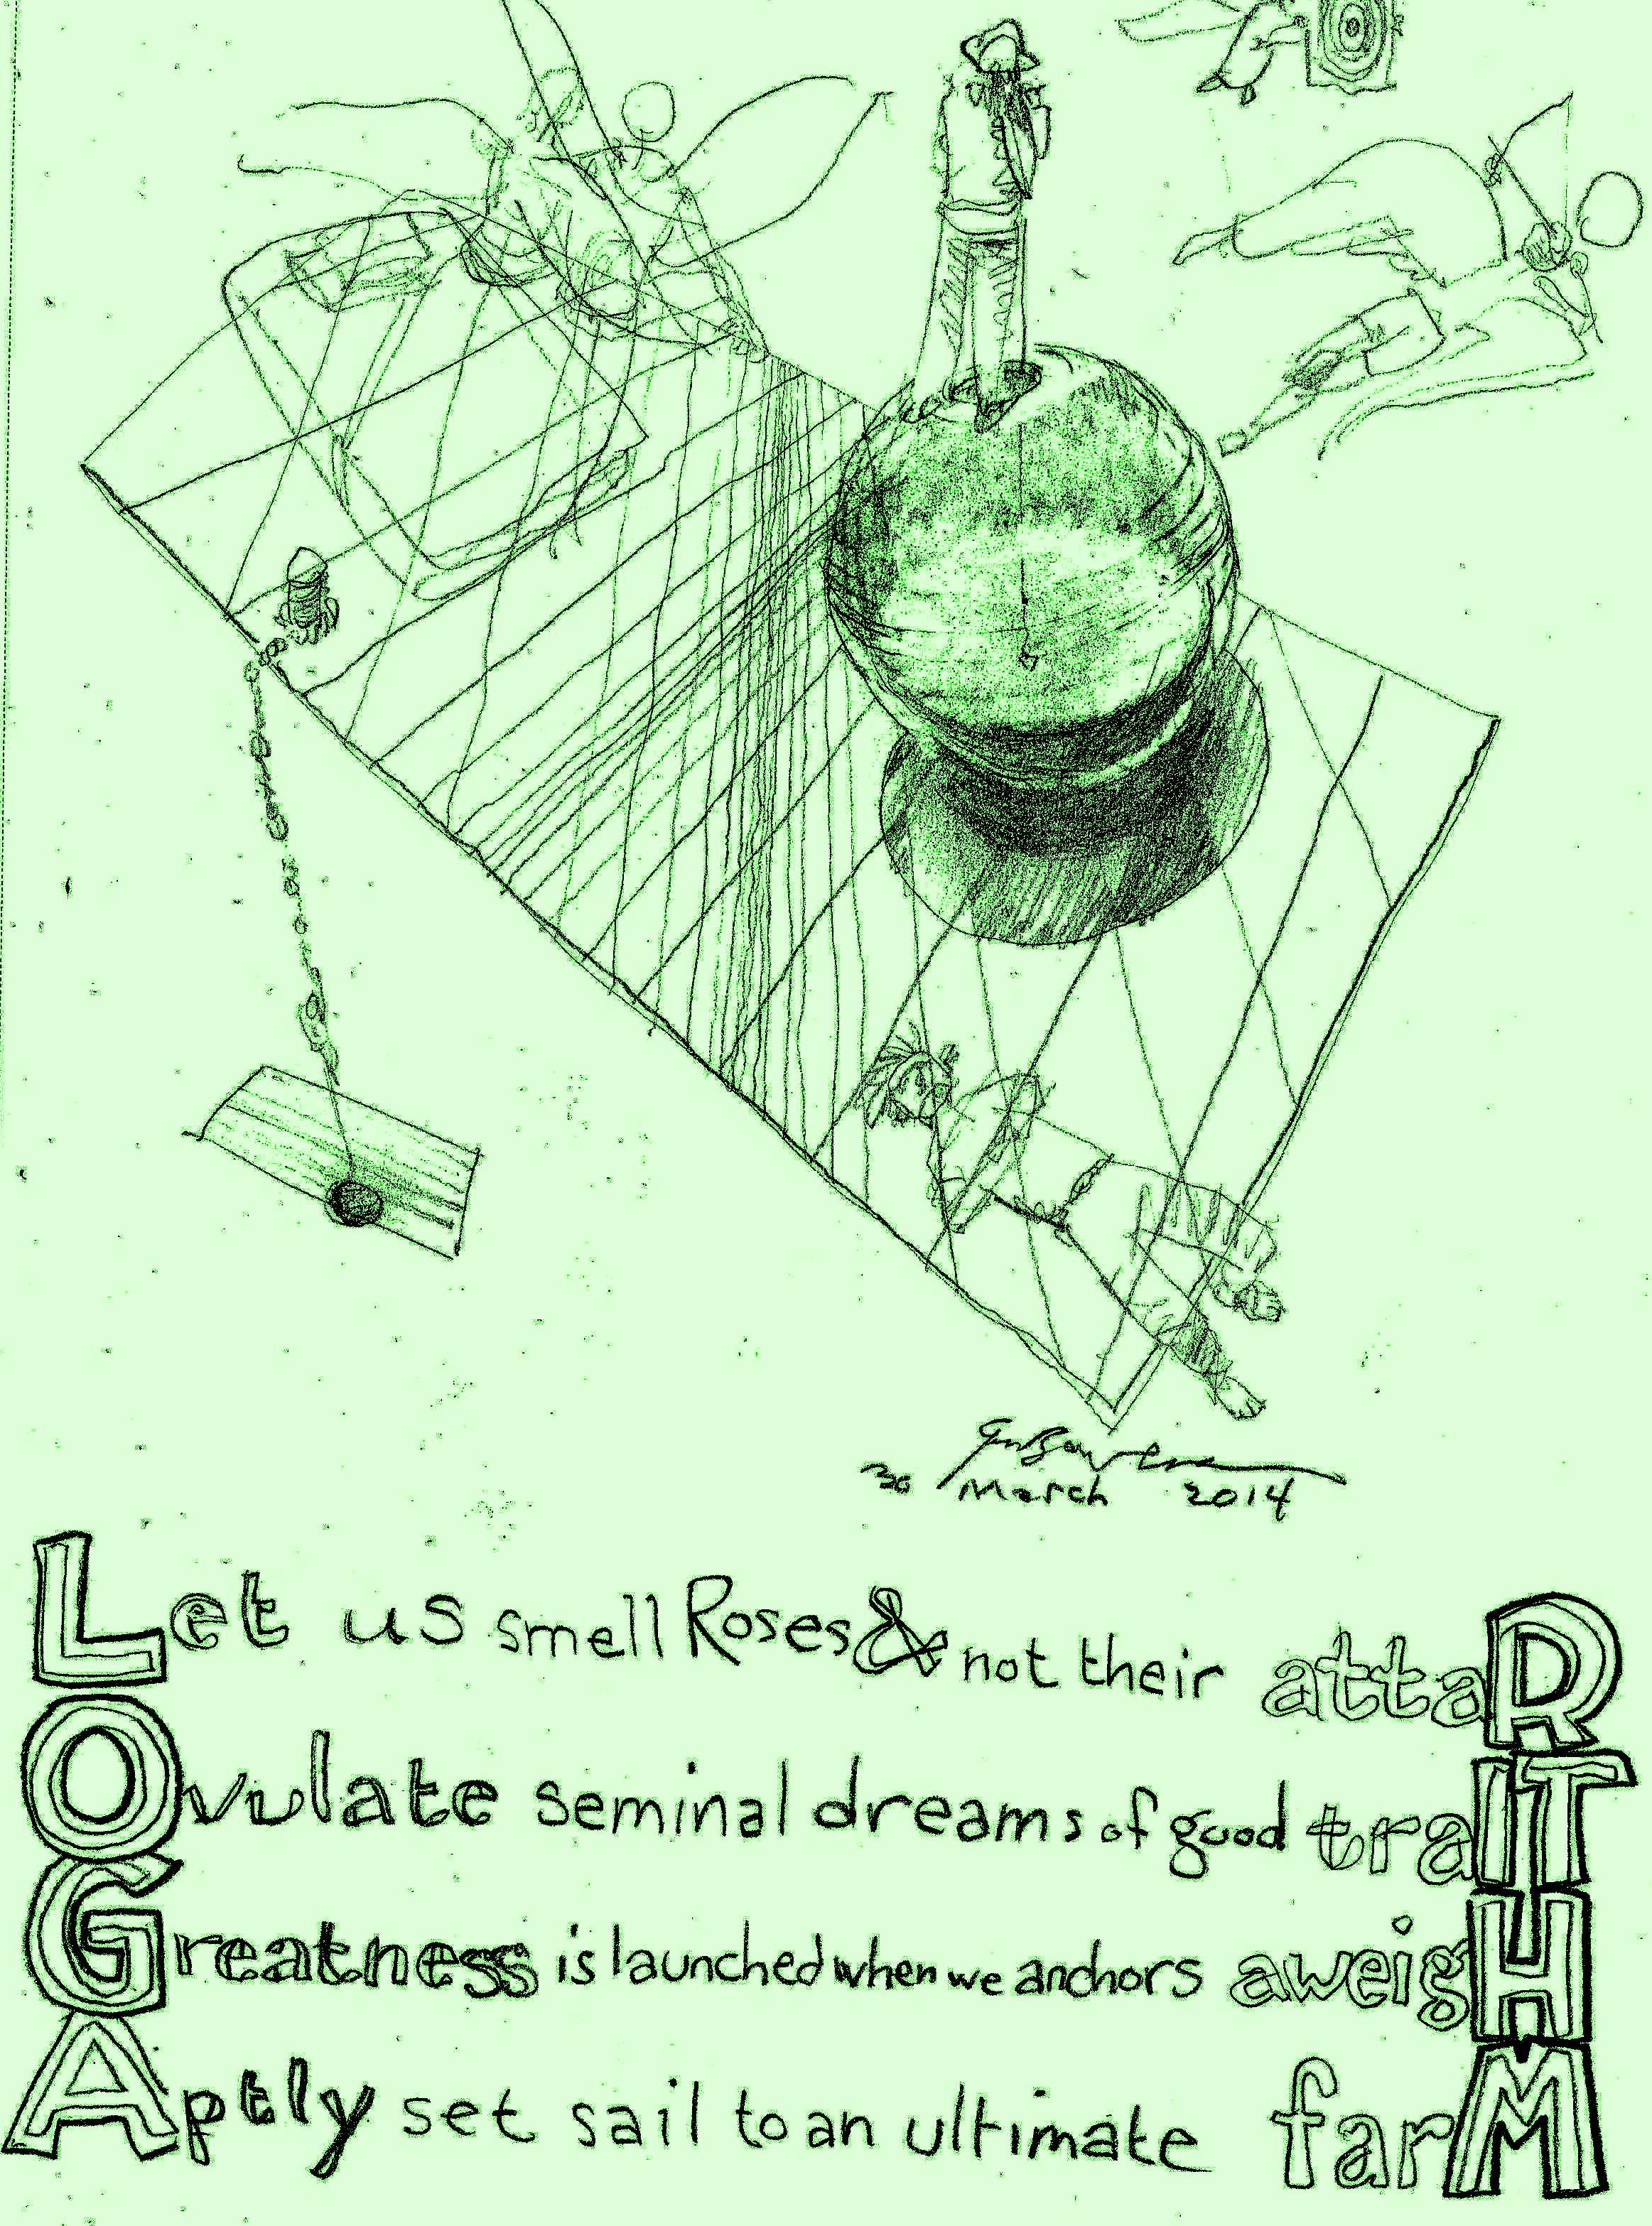 30 March 2014
Let us smell Roses & not their attaR
Ovulate seminal dreams of good traIT
Greatness is launched when we anchors aweigH
Aptly set sail to an ultimate farM